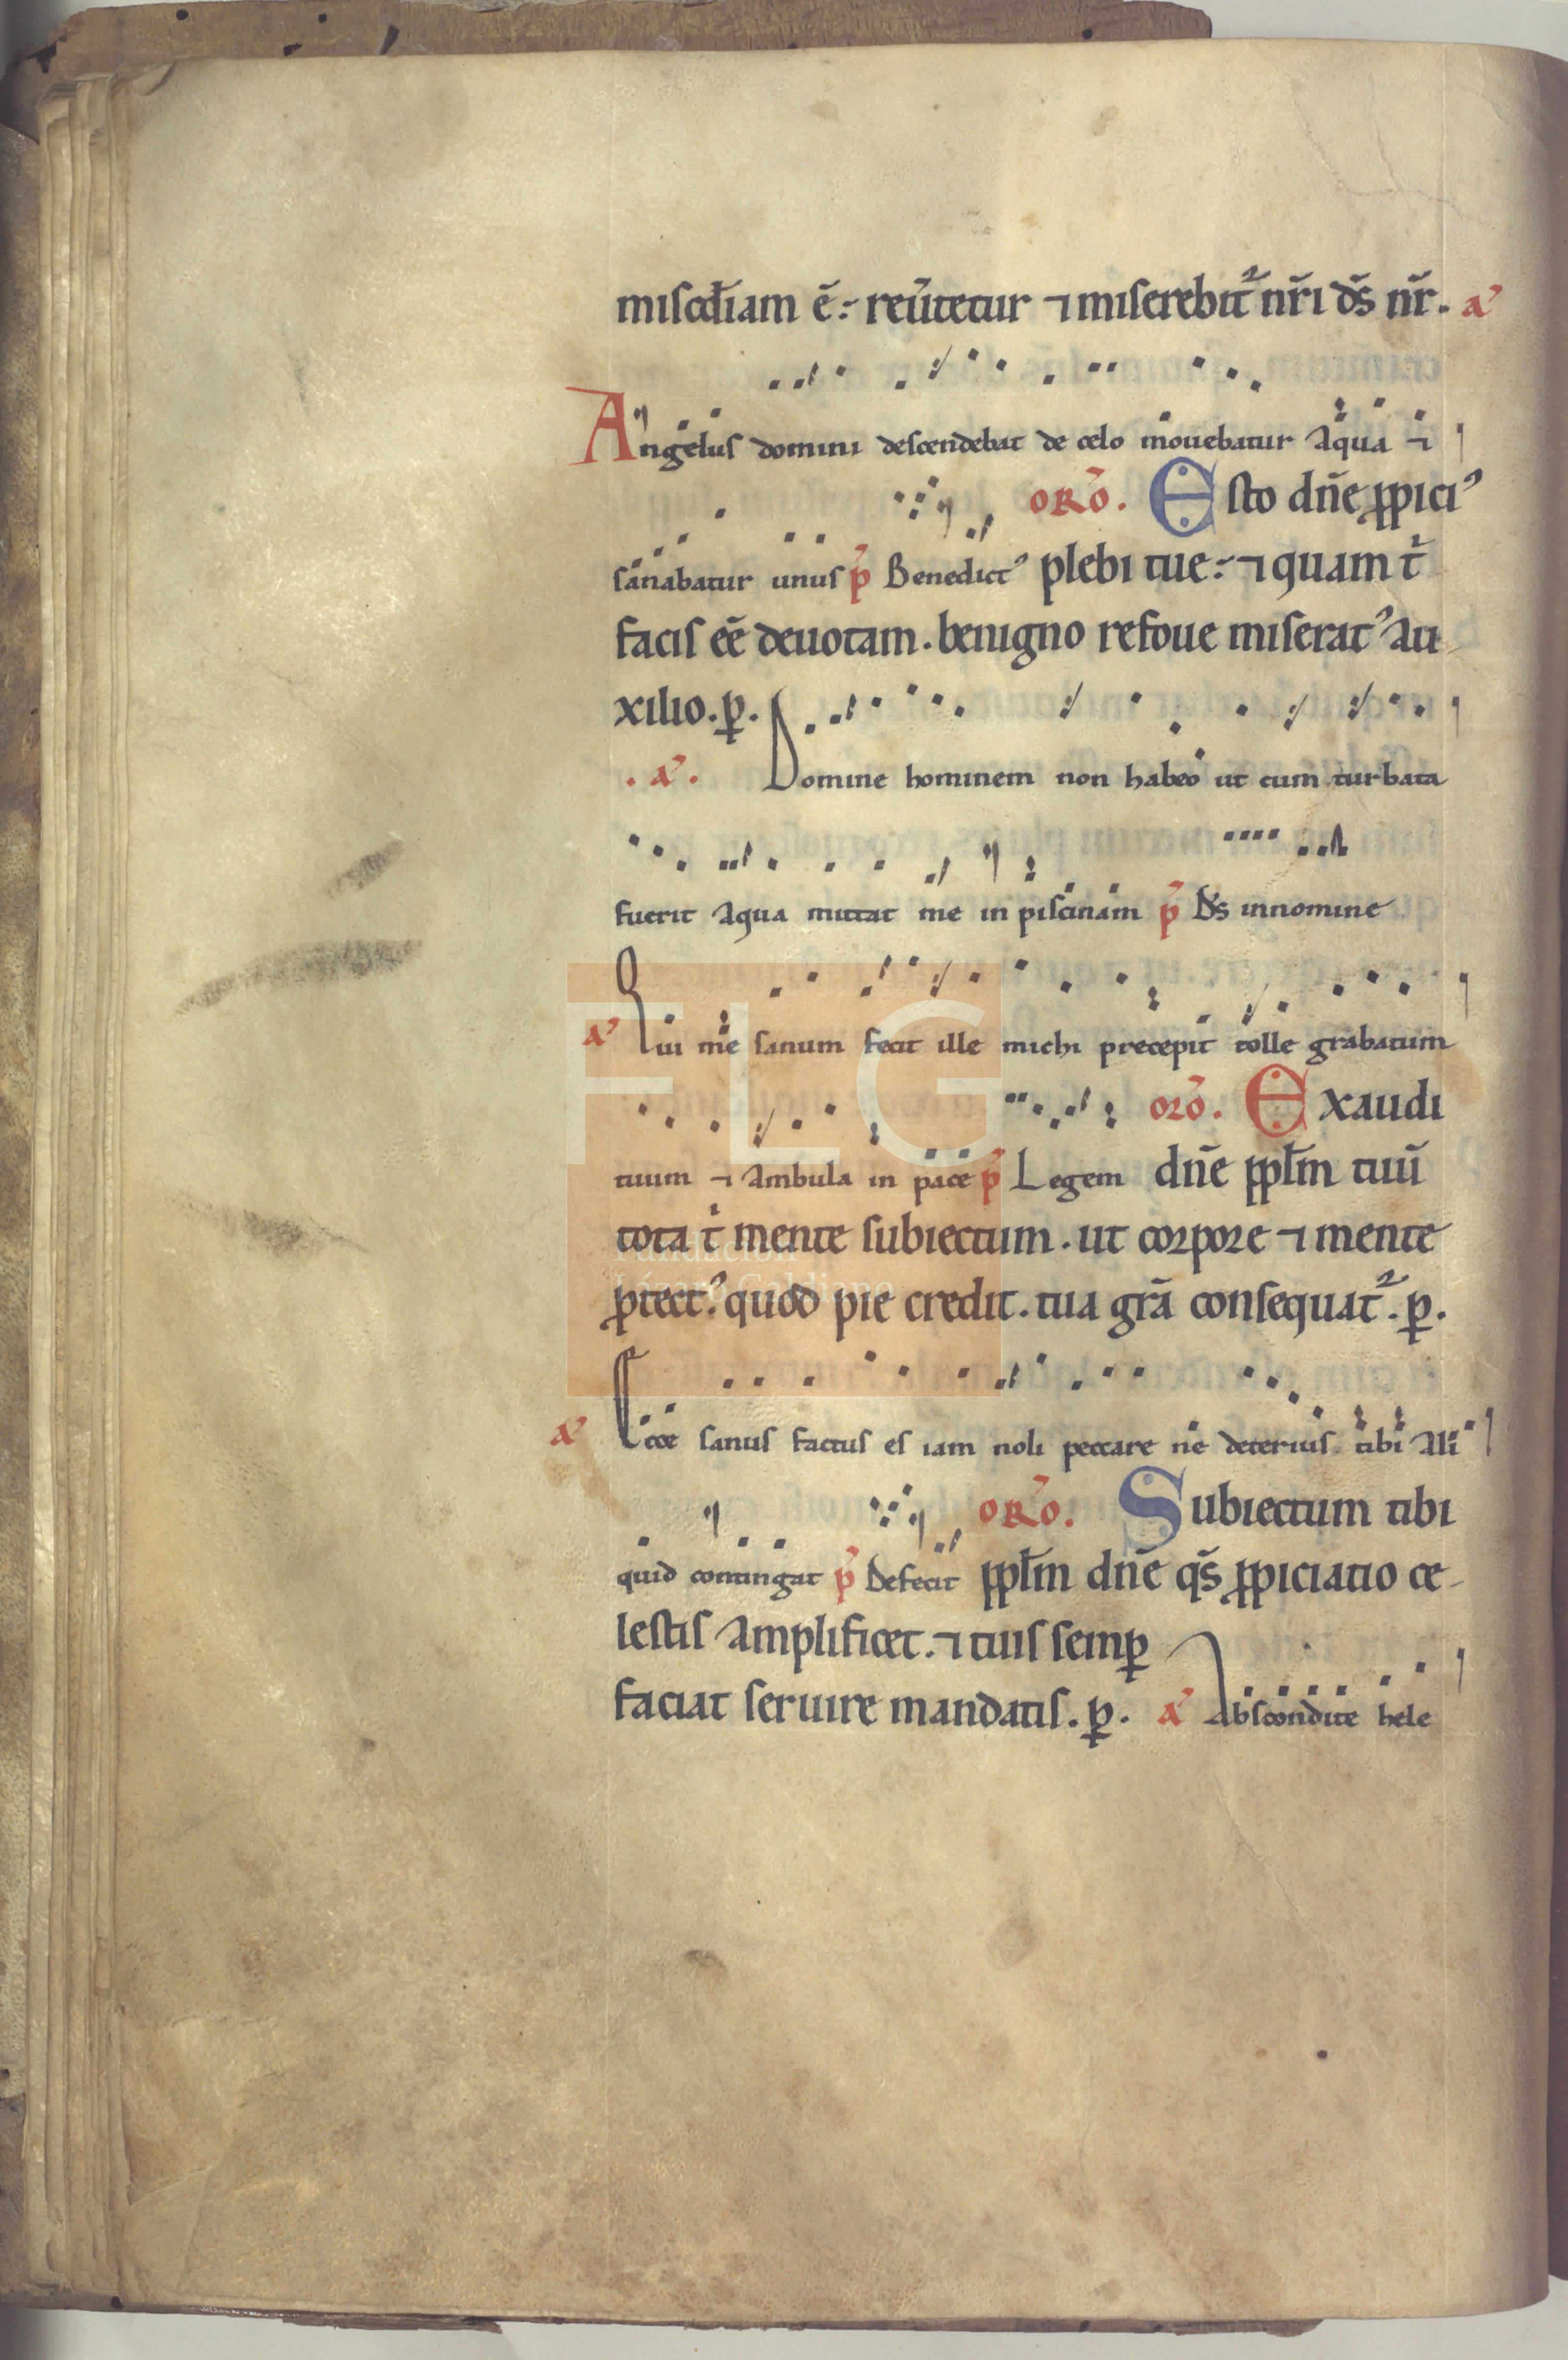 misc̄diam ē. reu̅tetur ⁊ miserebit᷑ nr̄i ds̄ nr̄. a᷑
Angelus domini descendebat de celo mouebatur aqua ⁊
oro᷑. Esto dn̄e ꝓpiciꝰ
sanabatur unus p̄ Benedictꝰ plebi tue: ⁊ quam t̄
facis eē deuotam. benigno refoue miseratꝰ au
xilio. ꝑ.
.a᷑. Domine hominem non habeo ut cum turbata
fuerit aqua mittat me in piscinam p̄ Ds̄ in nomine
a᷑ Qui me sanum fecit ille michi precepit tolle grabatum
oro᷑. Exaudi
tuum ⁊ ambula in pace p̄ Legem dn̄e ppl̄m tuū
tota t̄ mente subiectum. ut corpore ⁊ mente
ꝓtectꝰ. quod pie credit. tua gr̄a consequat᷑. ꝑ.
a᷑ Ecce sanus factus es iam noli peccare ne deterius tibi ali
oro᷑. Subiectum tibi
quid contingat p̄ Defecit ppl̄m dn̄e qs̄ ꝓpiciatio ce
lestis amplificet. ⁊ tuis semꝑ
faciat seruire mandatis. ꝑ. a᷑ Abscondite hele
FLG
Fundación
Lázaro Galdiano